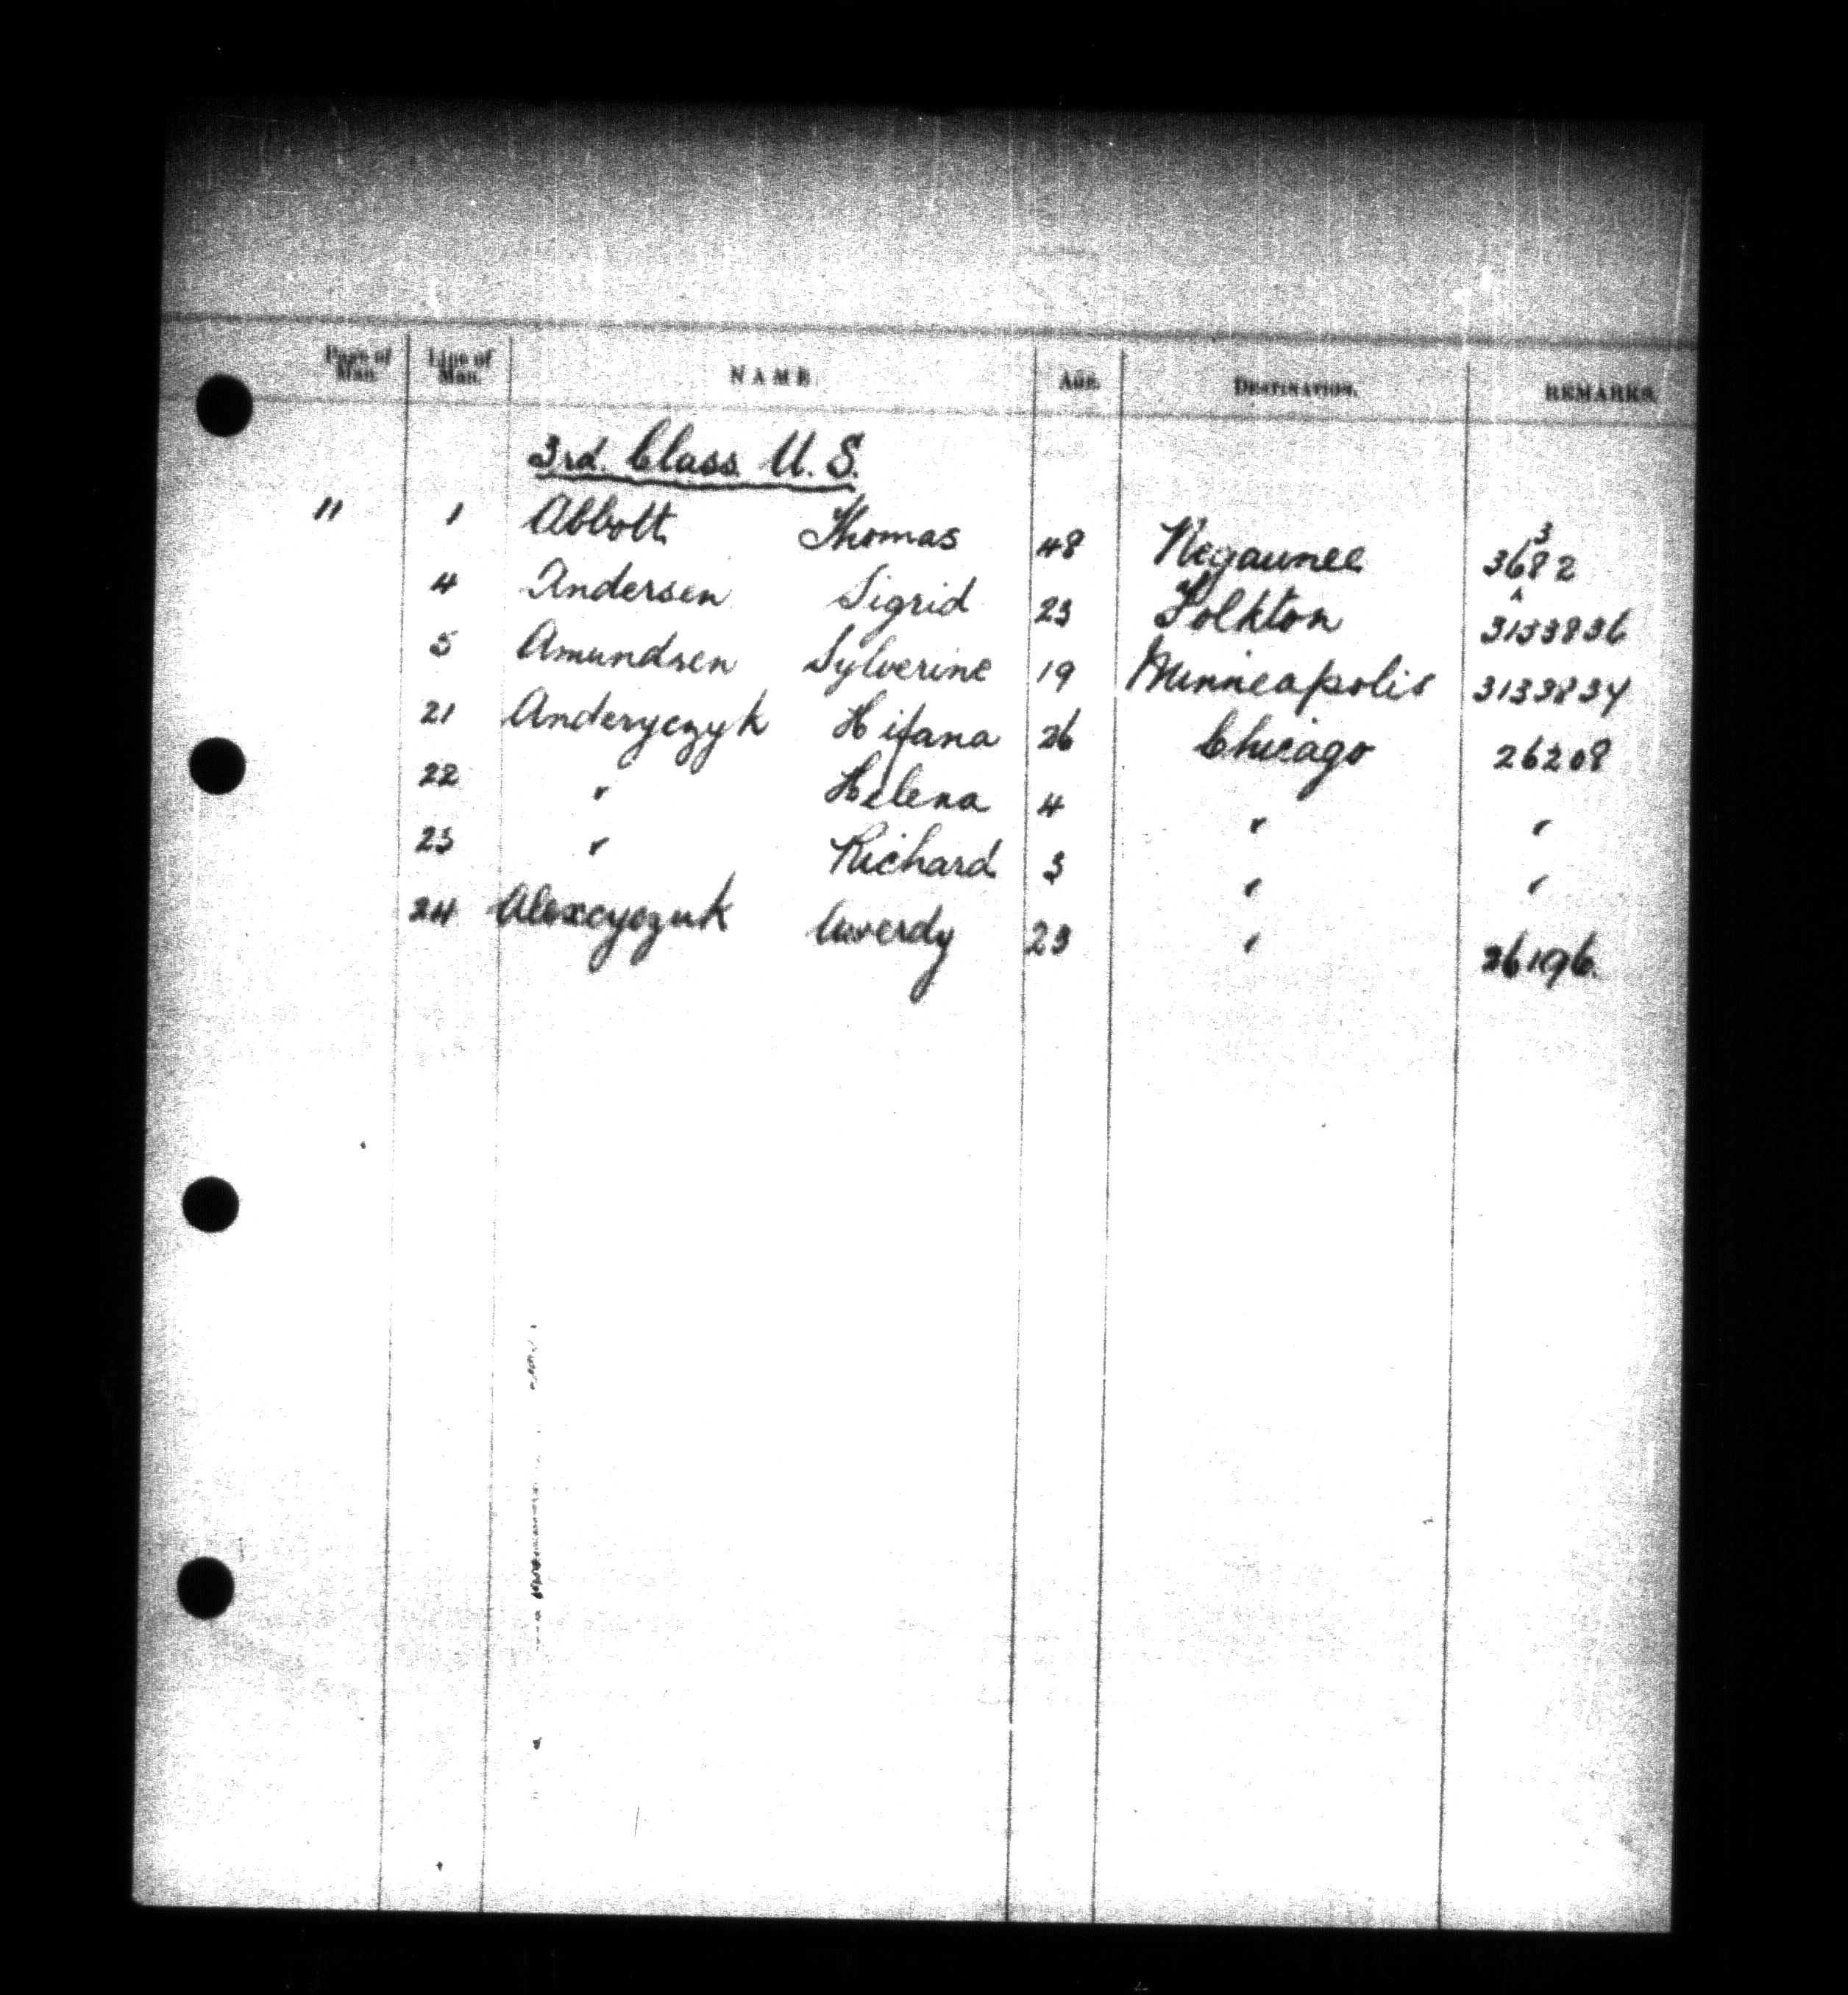 Page of Man. Line of Man. NAME. AGE. DESTINATION. REMARKS.
3rd. Class. U.S.
11 1 Abbott Thomas 48 Negaunee 3 3682
4 Andersen Sigrid 23 ^ 3133836
5 Amundsen Sylverine 19 Minneapolis 3133834
21 Anderyczyk Hifana 26 Chicago 26208
22 " Helena 4 " "
23 " Richard 3 " "
24 Alexcyczuk 23 " 26196.